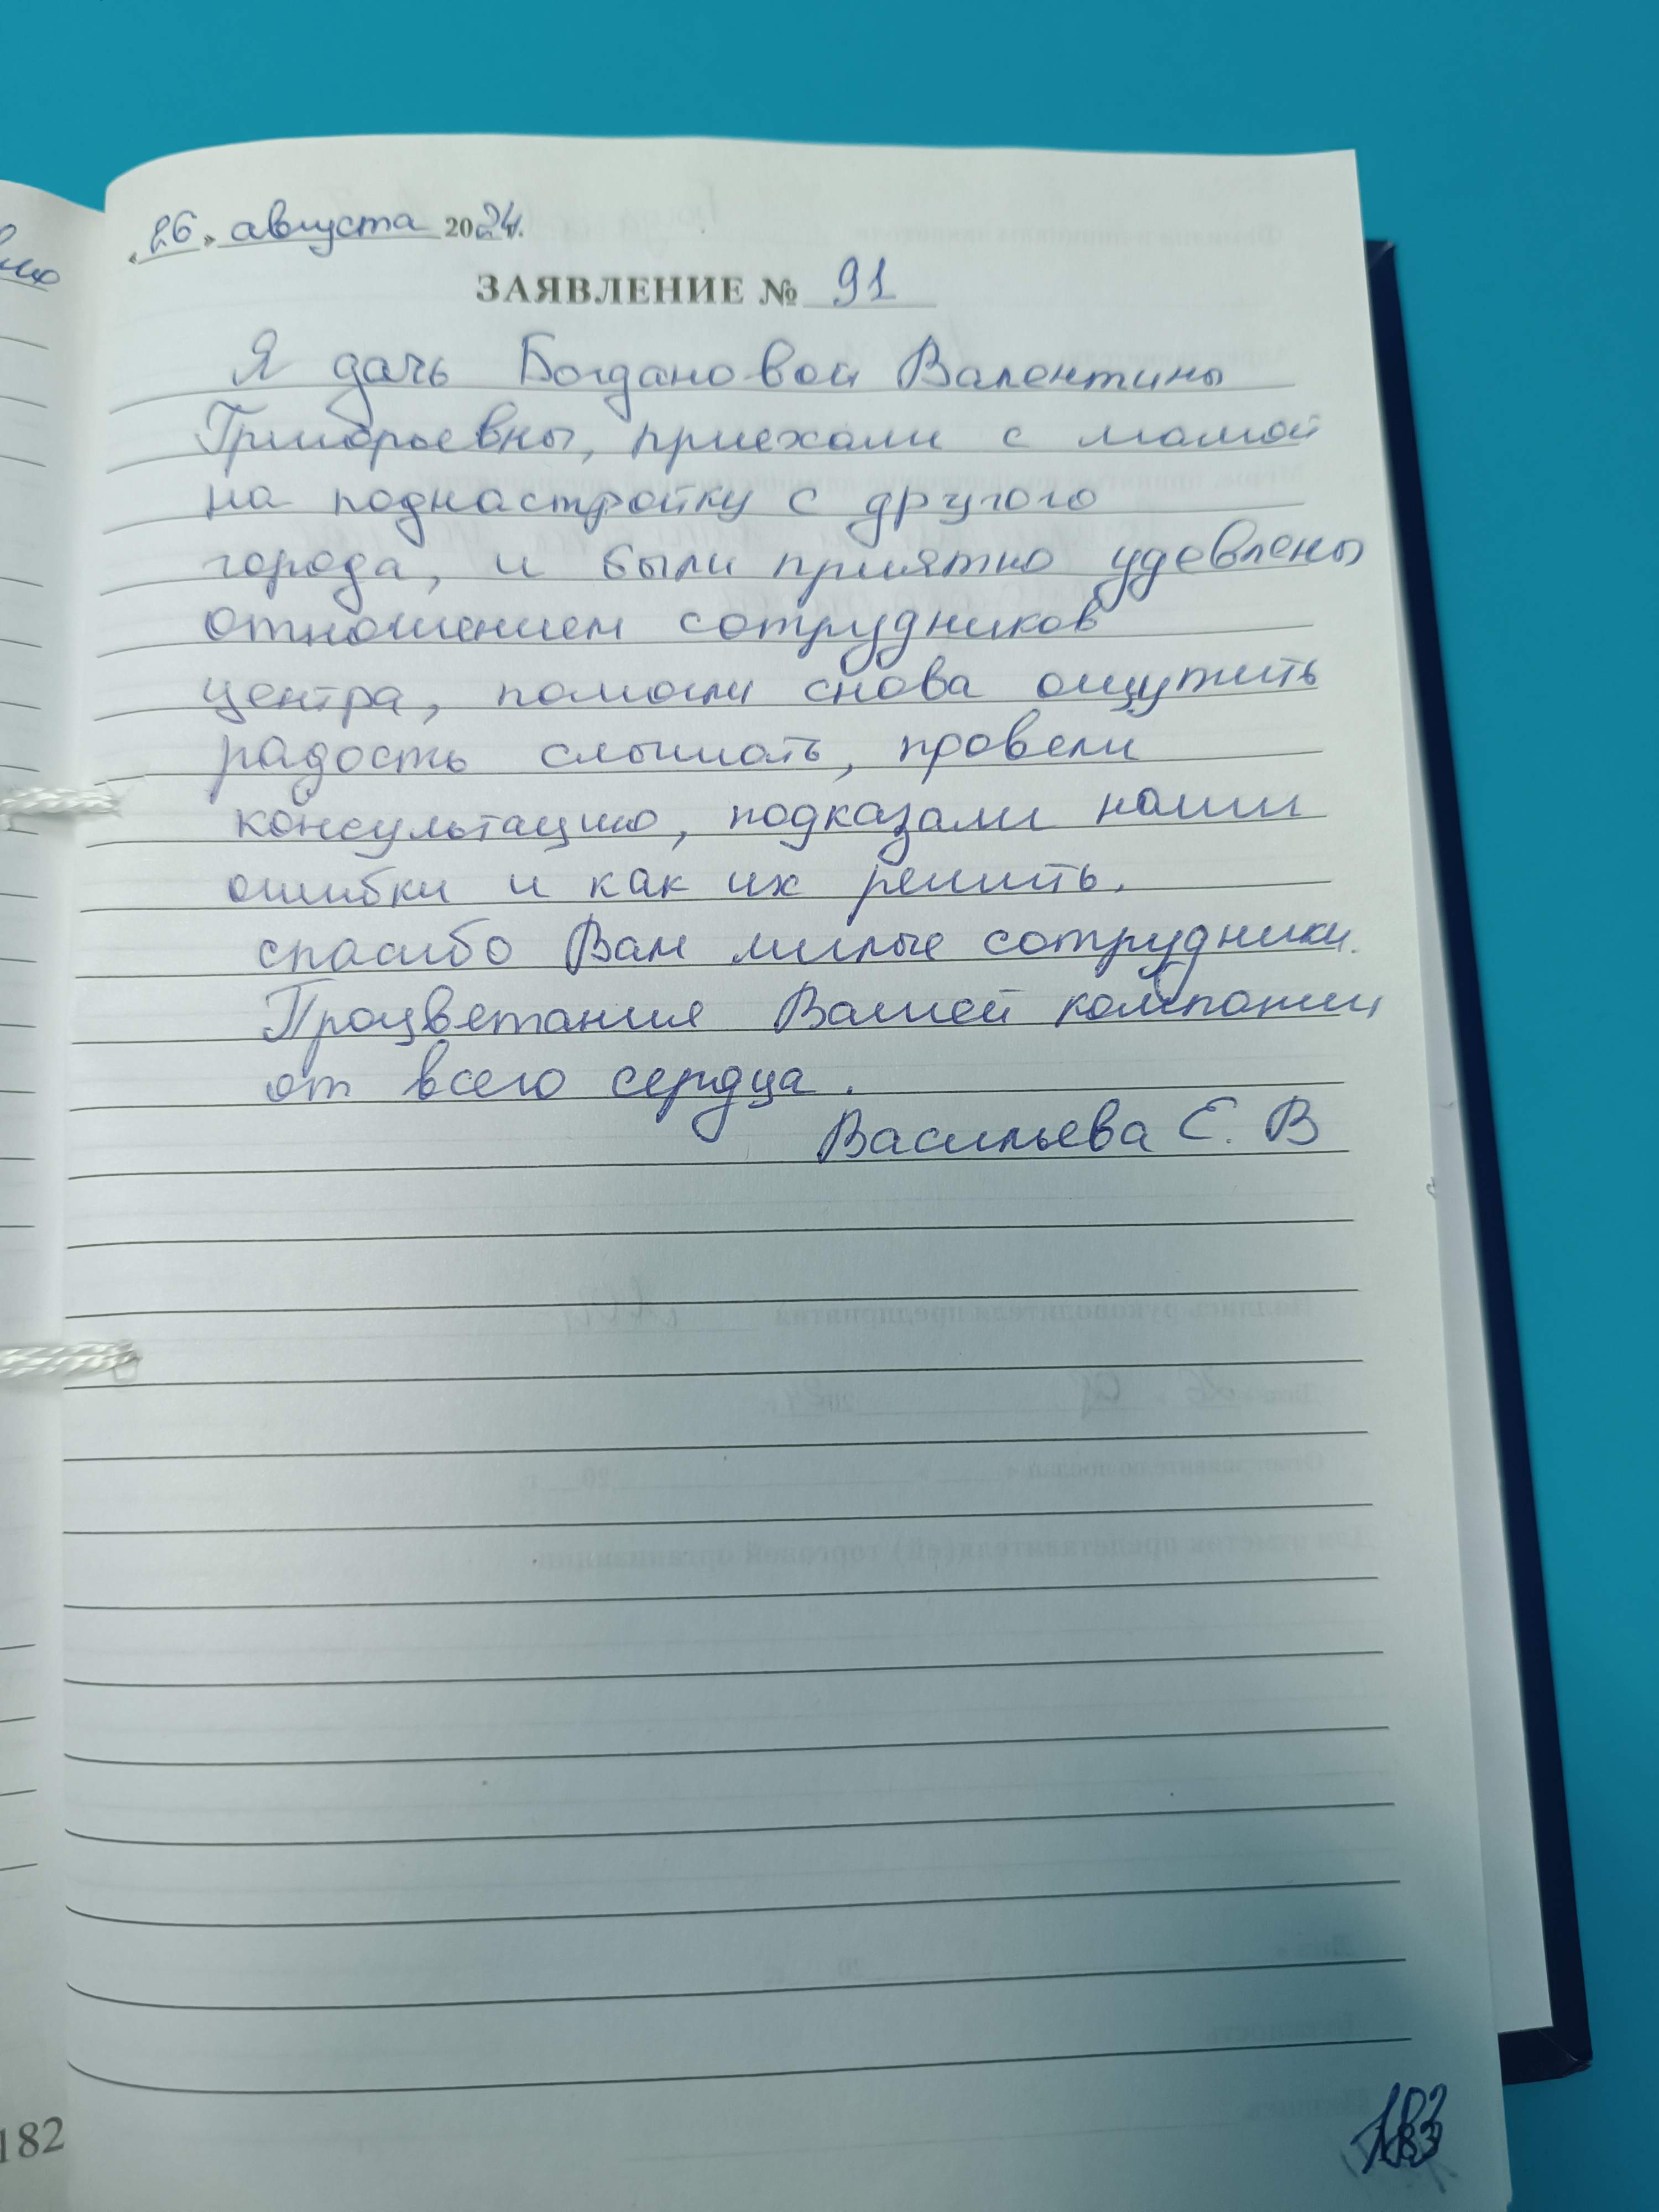 « 26 » августа 2024г.
ЗАЯВЛЕНИЕ № 91
Я дачь Богдановой Валентины
Григорьевны, приехали с мамой
на поднастройку с другого
города, и были приятно удевлены
отношением сотрудников
центра, помогли снова ощутить
радость слышать, провели
консультацию, подказали наши
ошибки и как их решить.
спасибо Вам милые сотрудники.
Процветания Вашей компании,
от всего сердца.
Васильева Е. В
182
183